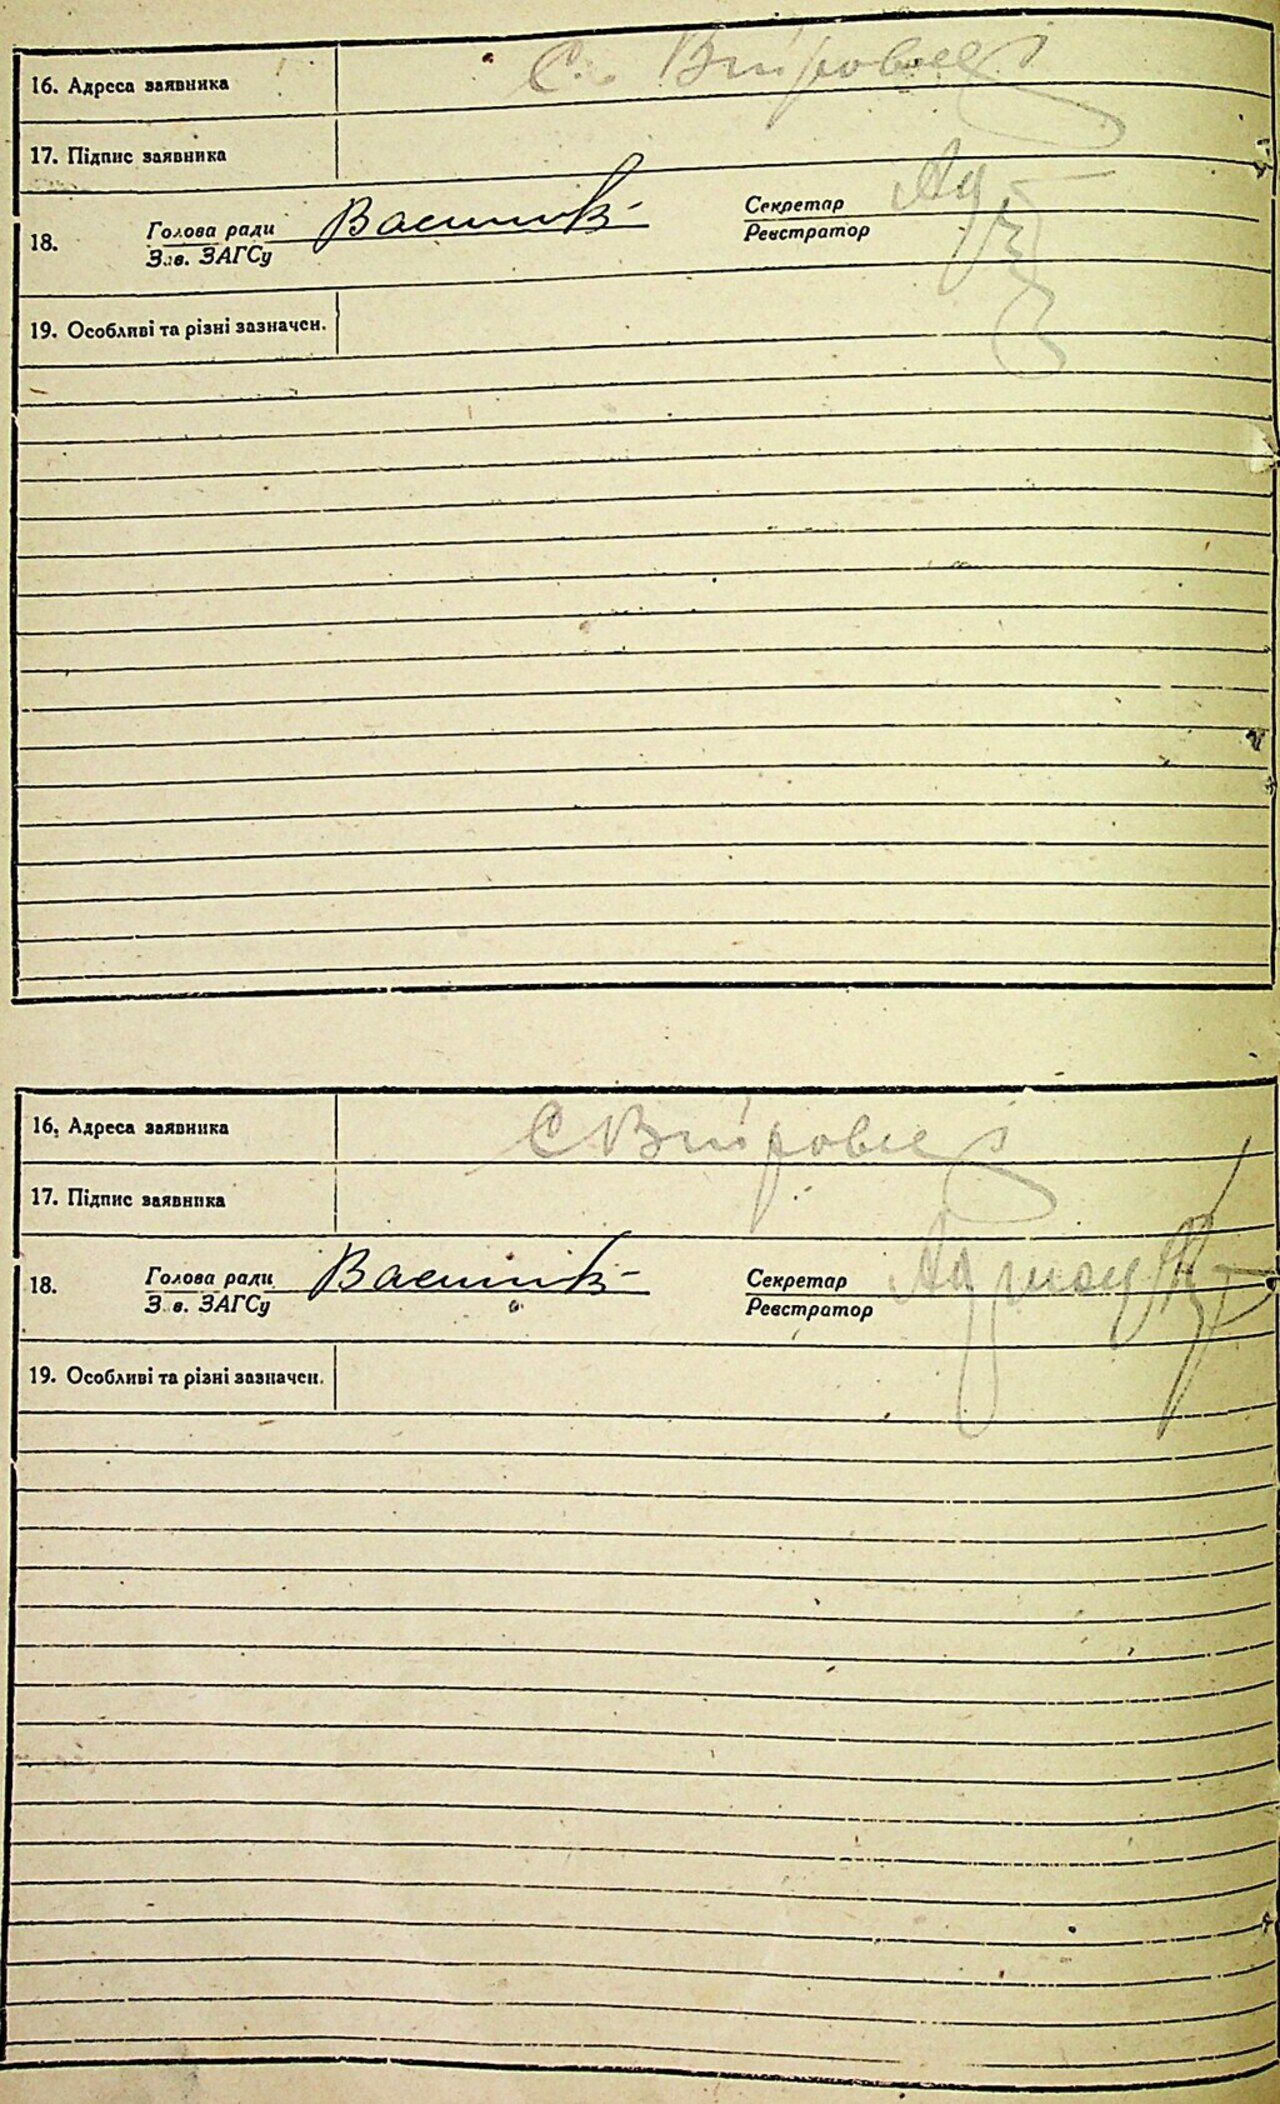 16. Адреса заявника С. Вигровле
17. Підпис заявника
18. Голова ради Василик Секретар
Зав. ЗАГСу Реєстратор
19. Особливі та різні зазначен.
16. Адреса заявника С
17. Підпис заявника
18. Голова ради Василик Секретар
Зав. ЗАГСу Реєстратор
19. Особливі та різні зазначен.